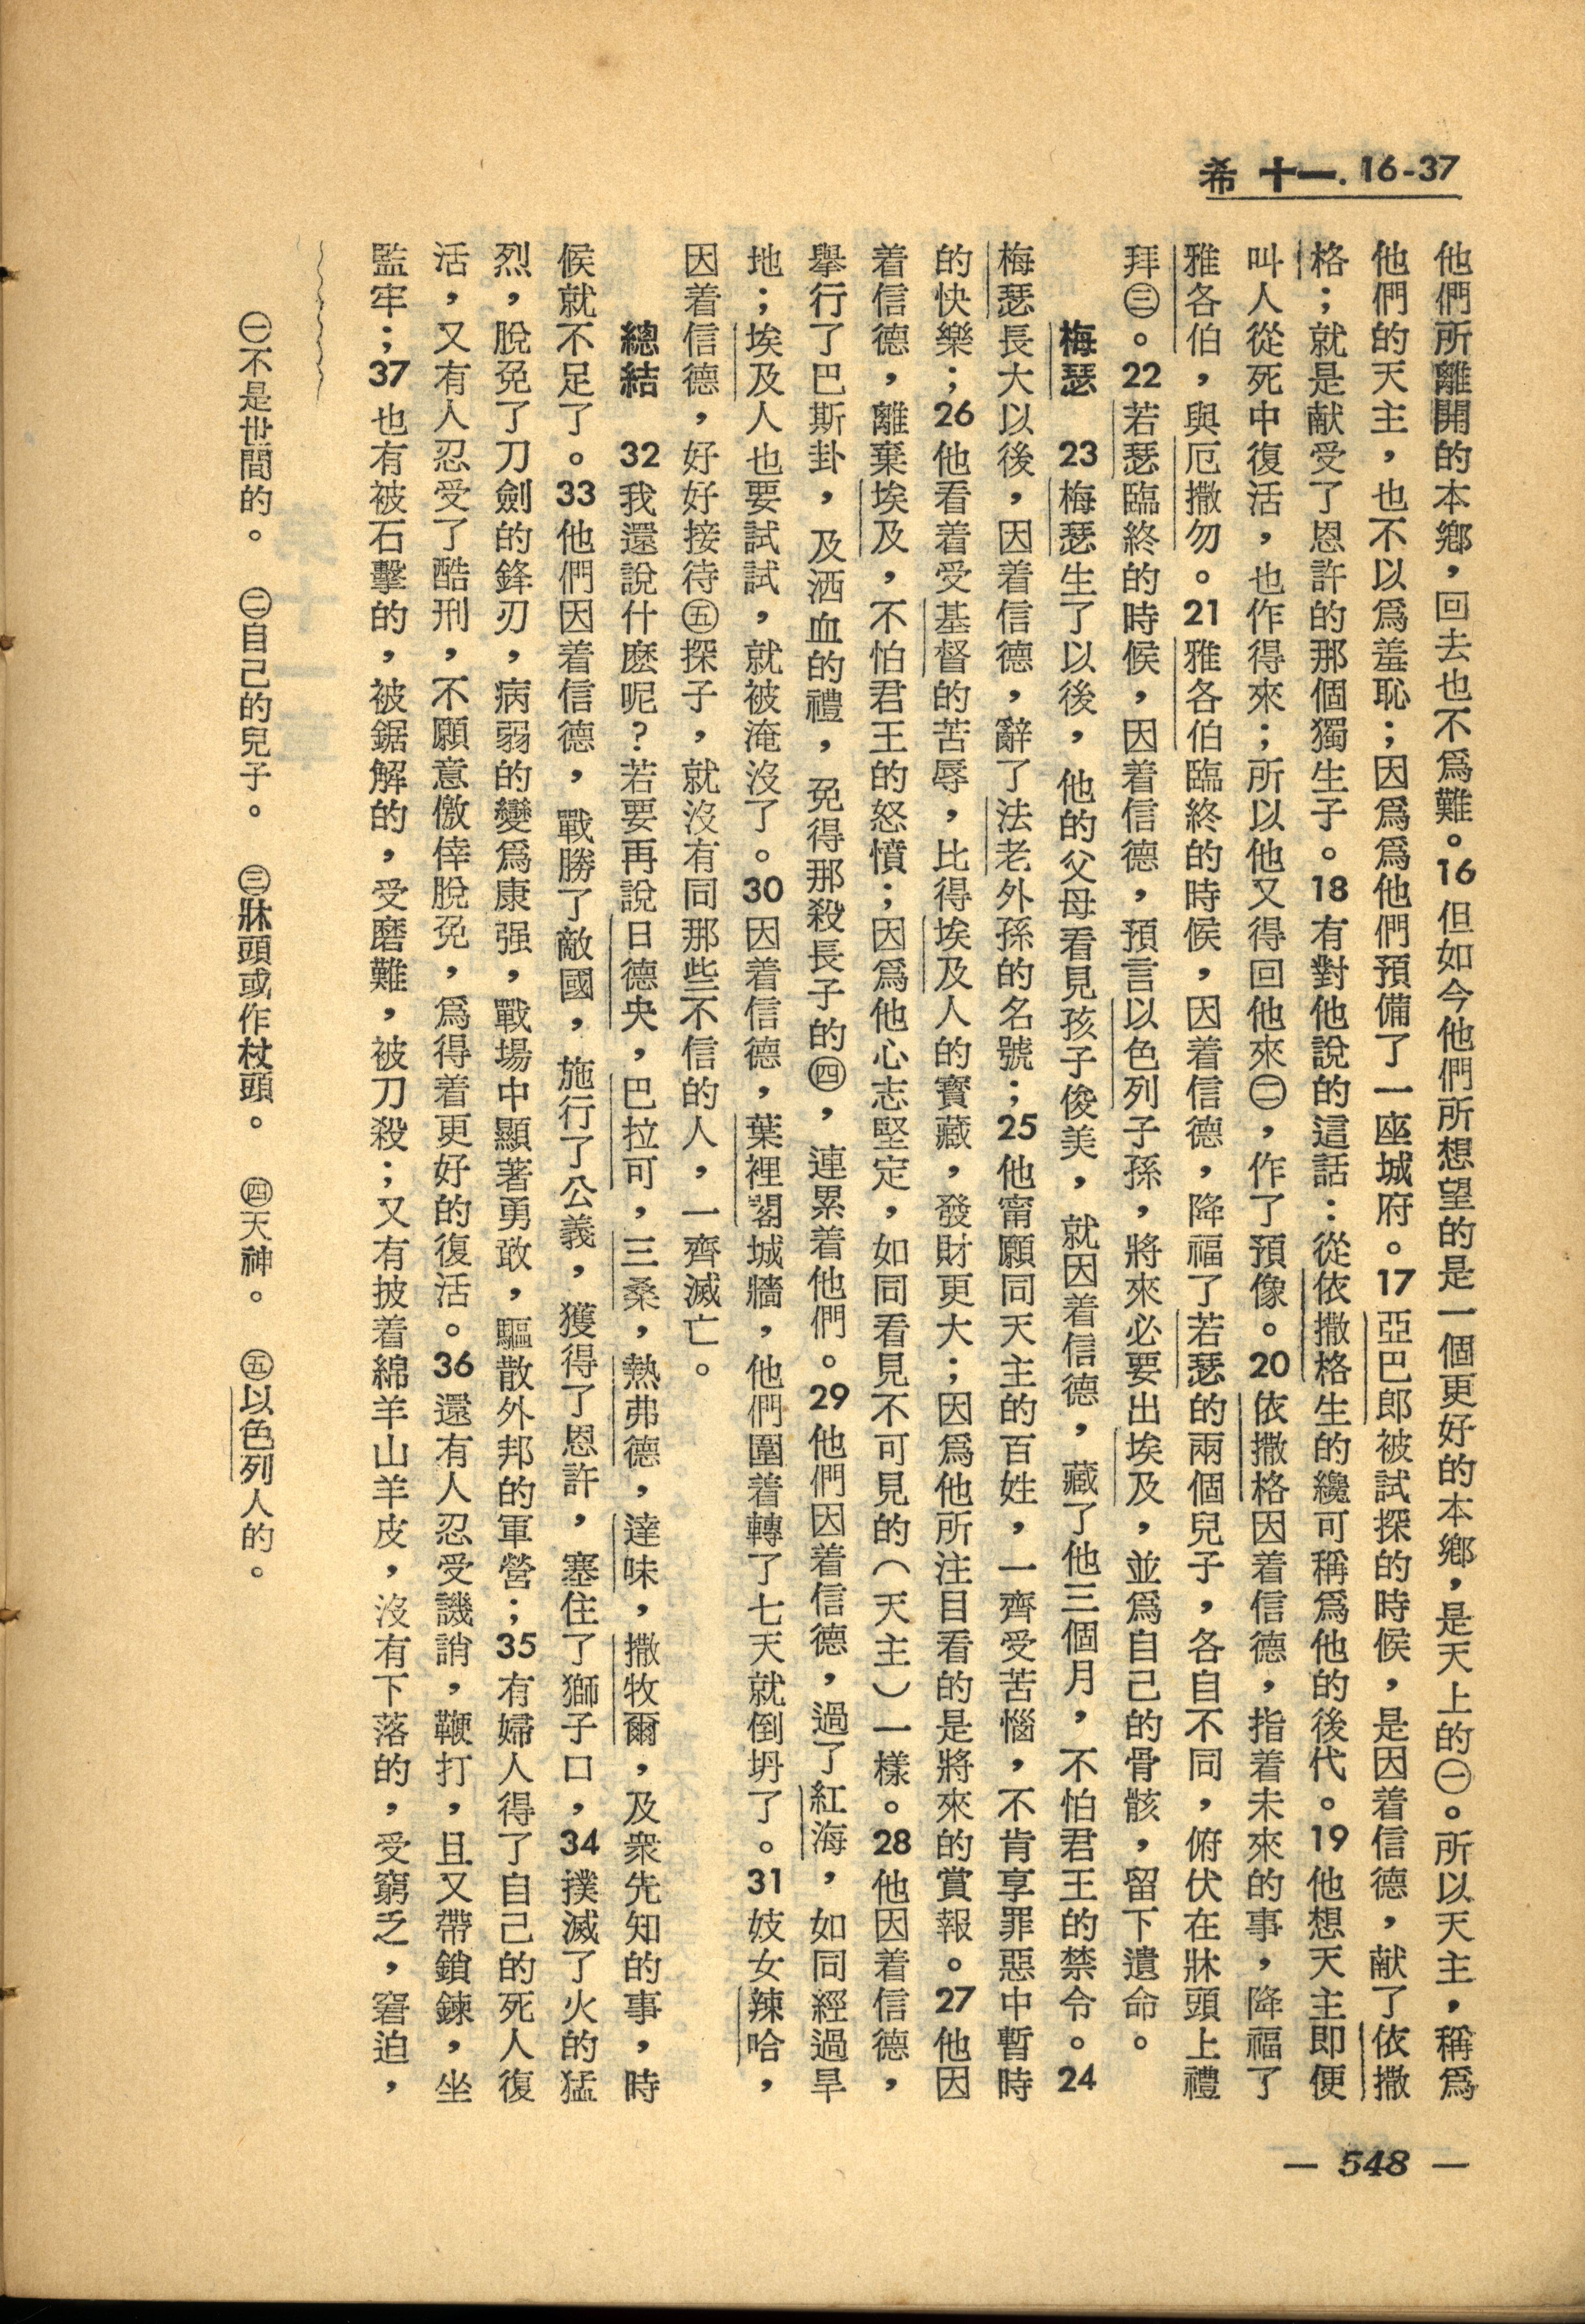 希 十一. 16-37
他們所離開的本鄉，回去也不爲難。16但如今他們所想望的是一個更好的本鄉，是天上的㊀。所以天主，稱爲
他們的天主，也不以爲羞恥；因爲他們預備了一座城府。17亞巴郎被試探的時候，是因着信德，献了依撒
格；就是献受了恩許的那個獨生子。18有對他說的這話：從依撒格生的纔可稱爲他的後代。19他想天主即便
叫人從死中復活，也作得來；所以他又得回他來㊁，作了預像。20依撒格因着信德，指着未來的事，降福了
雅各伯，與厄撒勿。21雅各伯臨終的時候，因着信德，降福了若瑟的兩個兒子，各自不同，俯伏在牀頭上禮
拜㊂。22若瑟臨終的時候，因着信德，預言以色列子孫，將來必要出埃及，並爲自己的骨骸，留下遺命。
梅瑟　23梅瑟生了以後，他的父母看見孩子俊美，就因着信德，藏了他三個月，不怕君王的禁令。24
梅瑟長大以後，因着信德，辭了法老外孫的名號；25他甯願同天主的百姓，一齊受苦惱，不肯享罪惡中暫時
的快樂；26他看着受基督的苦辱，比得埃及人的寳藏，發財更大；因爲他所注目看的是將來的賞報。27他因
着信德，離棄埃及，不怕君王的怒憤；因爲他心志堅定，如同看見不可見的（天主）一樣。28他因着信德，
舉行了巴斯卦，及洒血的禮，免得那殺長子的㊃，連累着他們。29他們因着信德，過了紅海，如同經過旱
地；埃及人也要試試，就被淹沒了。30因着信德，葉裡閣城牆，他們圍着轉了七天就倒坍了。31妓女辣哈，
因着信德，好好接待㊄探子，就沒有同那些不信的人，一齊滅亡。
總結　32我還說什麼呢？若要再說日德央，巴拉可，三桑，熱弗德，達味，撒牧爾，及衆先知的事，時
候就不足了。33他們因着信德，戰勝了敵國，施行了公義，獲得了恩許，塞住了獅子口，34撲滅了火的猛
烈，脫免了刀劍的鋒刃，病弱的變爲康强，戰場中顯著勇敢，驅散外邦的軍營；35有婦人得了自己的死人復
活，又有人忍受了酷刑，不願意儌倖脫免，爲得着更好的復活。36還有人忍受譏誚，鞭打，且又帶鎖鍊，坐
監牢；37也有被石擊的，被鋸解的，受磨難，被刀殺；又有披着綿羊山羊皮，沒有下落的，受窮乏，窘迫，
㊀不是世間的。　㊁自己的兒子。　㊂牀頭或作杖頭。　㊃天神。　㊄以色列人的。
— 548 —